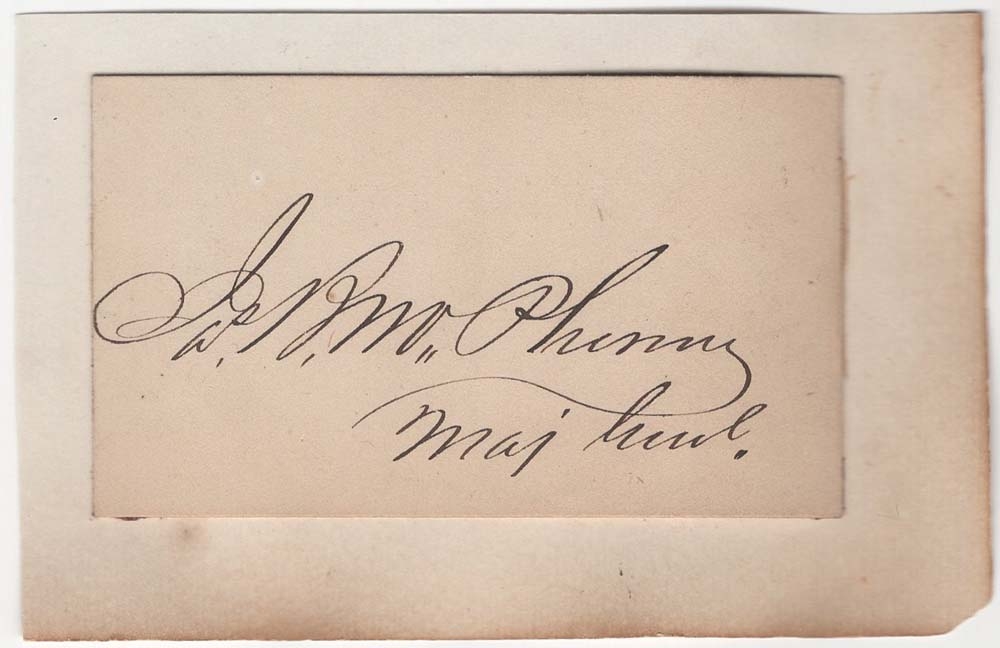 Jas. B. McPherson
Maj Genl.